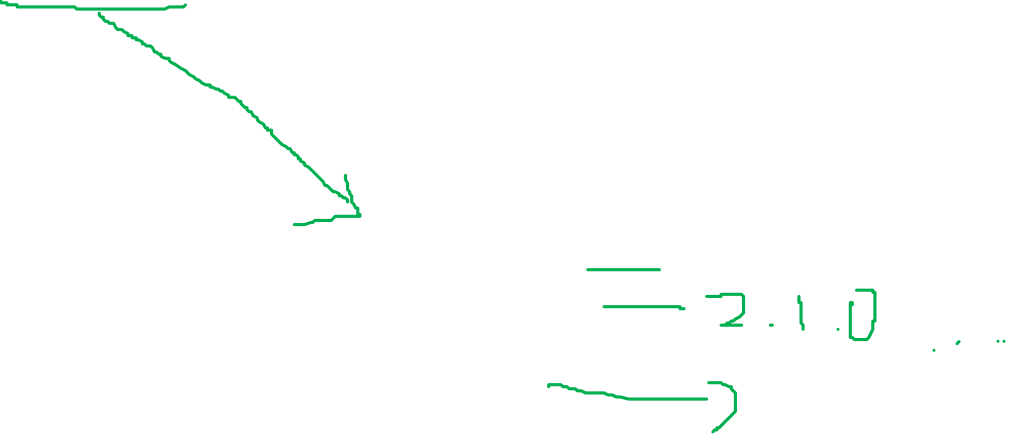 = 2.1.0 ....